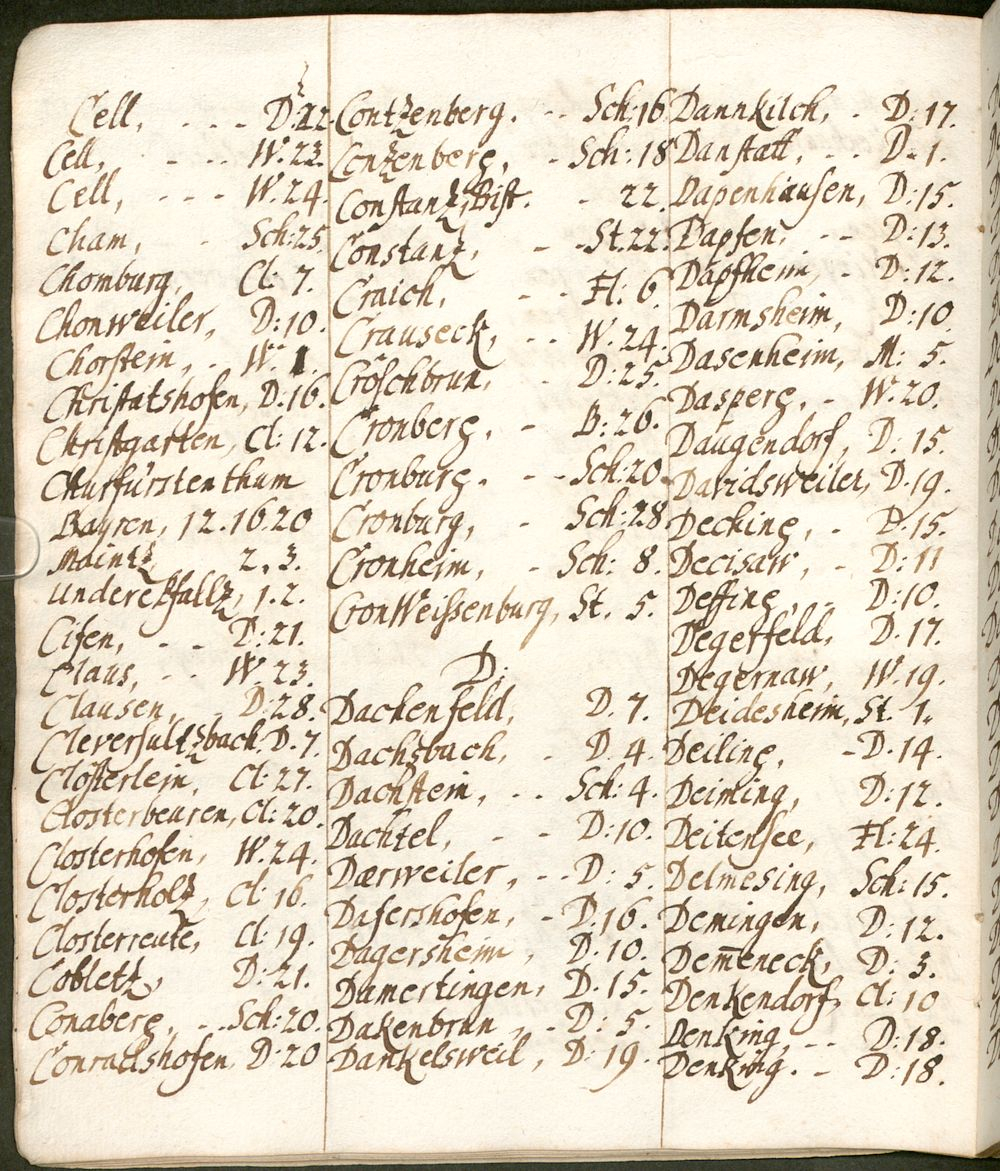 Cell, - - - D:22.
Cell, - - - W.23.
Cell, - - - W.24.
Cham, - Sch:25.
Chomburg, Cl: 7.
Chonweiler, D:10.
Chorstein, - W. 1.
Christatshofen, D:16.
Christgarten, Cl: 12.
Churfürstenthum
Bayren, 12.16.20
Maintz, 2. 3.
Undere Pfaltz, 1.2.
Cisen, - - D:21.
Claus, - - W.23.
Clausen, - D:28.
Cleversultzbach, D.7.
Closterlein, Cl:27.
Closterbeuren, Cl:20.
Closterhofen, W.24.
Closterholtz, Cl:16.
Closterreute, Cl:19.
Cobletz, D:21.
Conaberg, - - Sch:20.
Conradshofen, D:20
Contzenberg. - - Sch:16
Contzenberg, - Sch:18
Constantz, Bist. - 22.
Constantz, - - St.22.
Craich, - - Fl: 6
Crauseck, - - W.24.
Cröschbrun, - D:25.
Cronberg, - B:26.
Cronburg. - - Sch:20.
Cronburg, - Sch:28
Cronheim, - Sch: 8.
CronWeissenburg, St. 5.
D.
Dachenfeld, D.7.
Dachsbach, - D.4.
Dachstein, - - Sch:4.
Dachtel, - - D:10.
Dærweiler, - - D:5.
Dafershofen, - D.16.
Dagersheim, D:10.
Damertingen, D.15.
Dakenbrun, - D:5.
Dankelsweil, D:19.
Dannkilch, - D:17.
Danstatt, - - D.1.
Dapenhausen, D:15.
Dapfen, - - D:13.
Dapfheim, - D:12.
Darmsheim, D:10.
Dasenheim, M: 5.
Dasperg, - W.20.
Daugendorf, D:15.
Davidsweiler, D.19.
Decking, - D:15.
Decisaw, - D:11
Deffing, - - D:10.
Degerfeld, D.17.
Degernaw, W.19.
Deidesheim, St. 1.
Deiling, - D.14.
Deiming, D:12.
Deitensee, Fl:24.
Delmesing, Sch:15.
Demingen, D:12.
Dem̅eneck, D:3.
Denkendorf, Cl:10
Denking, - - D.18.
Denking. - D:18.